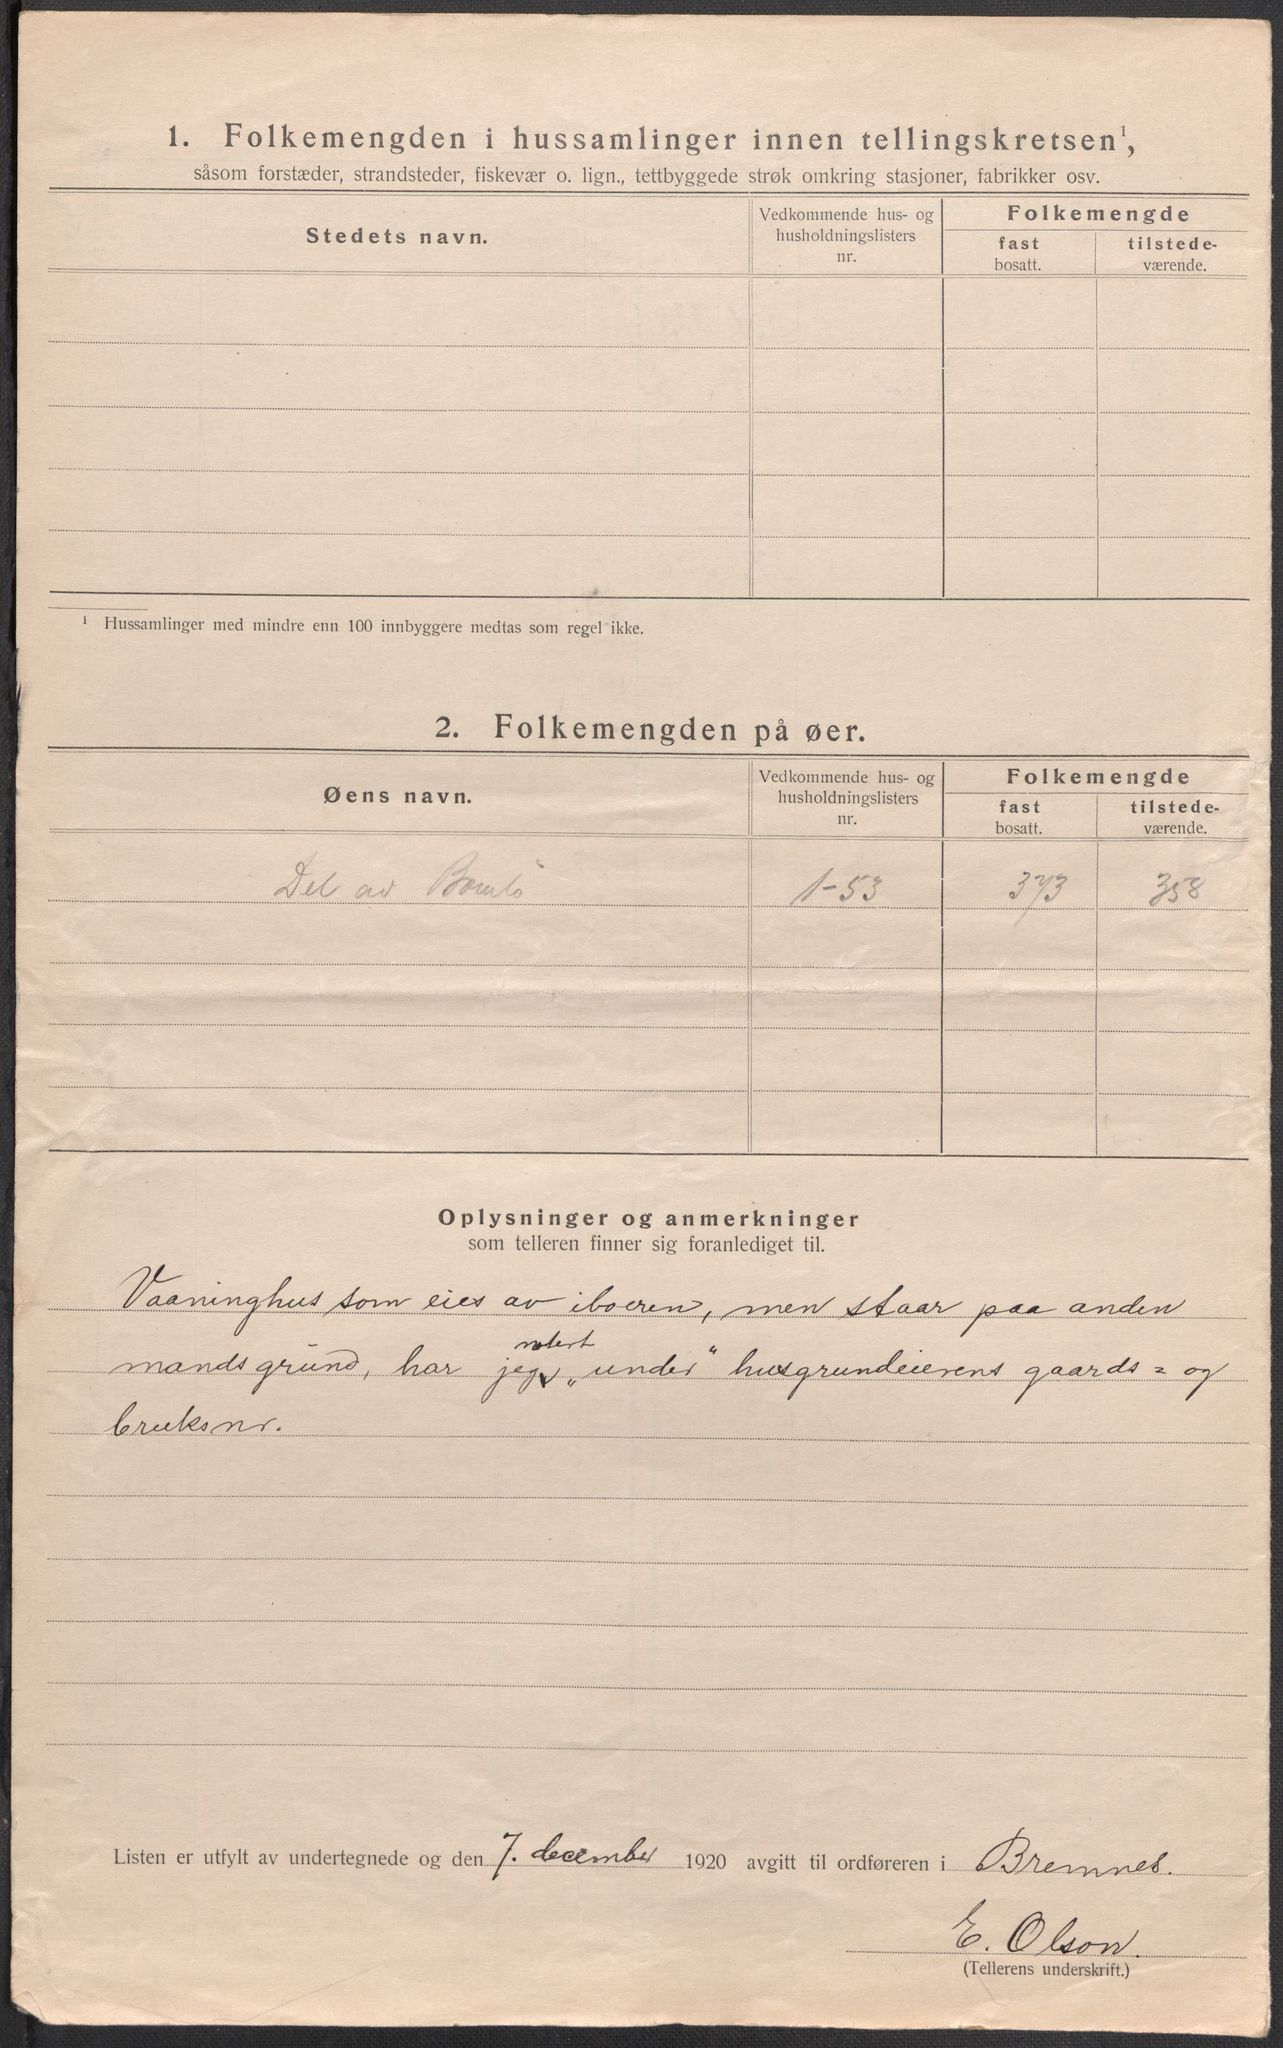 1. Folkemengden i hussamlinger innen tellingskretsen¹,
såsom forstæder, strandsteder, fiskevær o. lign., tettbyggede strøk omkring stasjoner, fabrikker osv.
Stedets navn.
Vedkommende hus- og
husholdningslisters
nr.
Folkemengde
fast
bosatt.
tilstede-
værende.
¹ Hussamlinger med mindre enn 100 innbyggere medtas som regel ikke.
2. Folkemengden på øer.
Øens navn.
Vedkommende hus- og
husholdningslisters
nr.
Folkemengde
fast
bosatt.
tilstede-
værende.
Del av Bømlo 1-53 373 358
Oplysninger og anmerkninger
som telleren finner sig foranlediget til.
Vaaninghus som eies av iboeren, men staar paa anden
notert
mands grund, har jeg „under" husgrundeierens gaards= og
bruksnr.
Listen er utfylt av undertegnede og den 7. december 1920 avgitt til ordføreren i Bremnes.
E. Olson.
(Tellerens underskrift.)